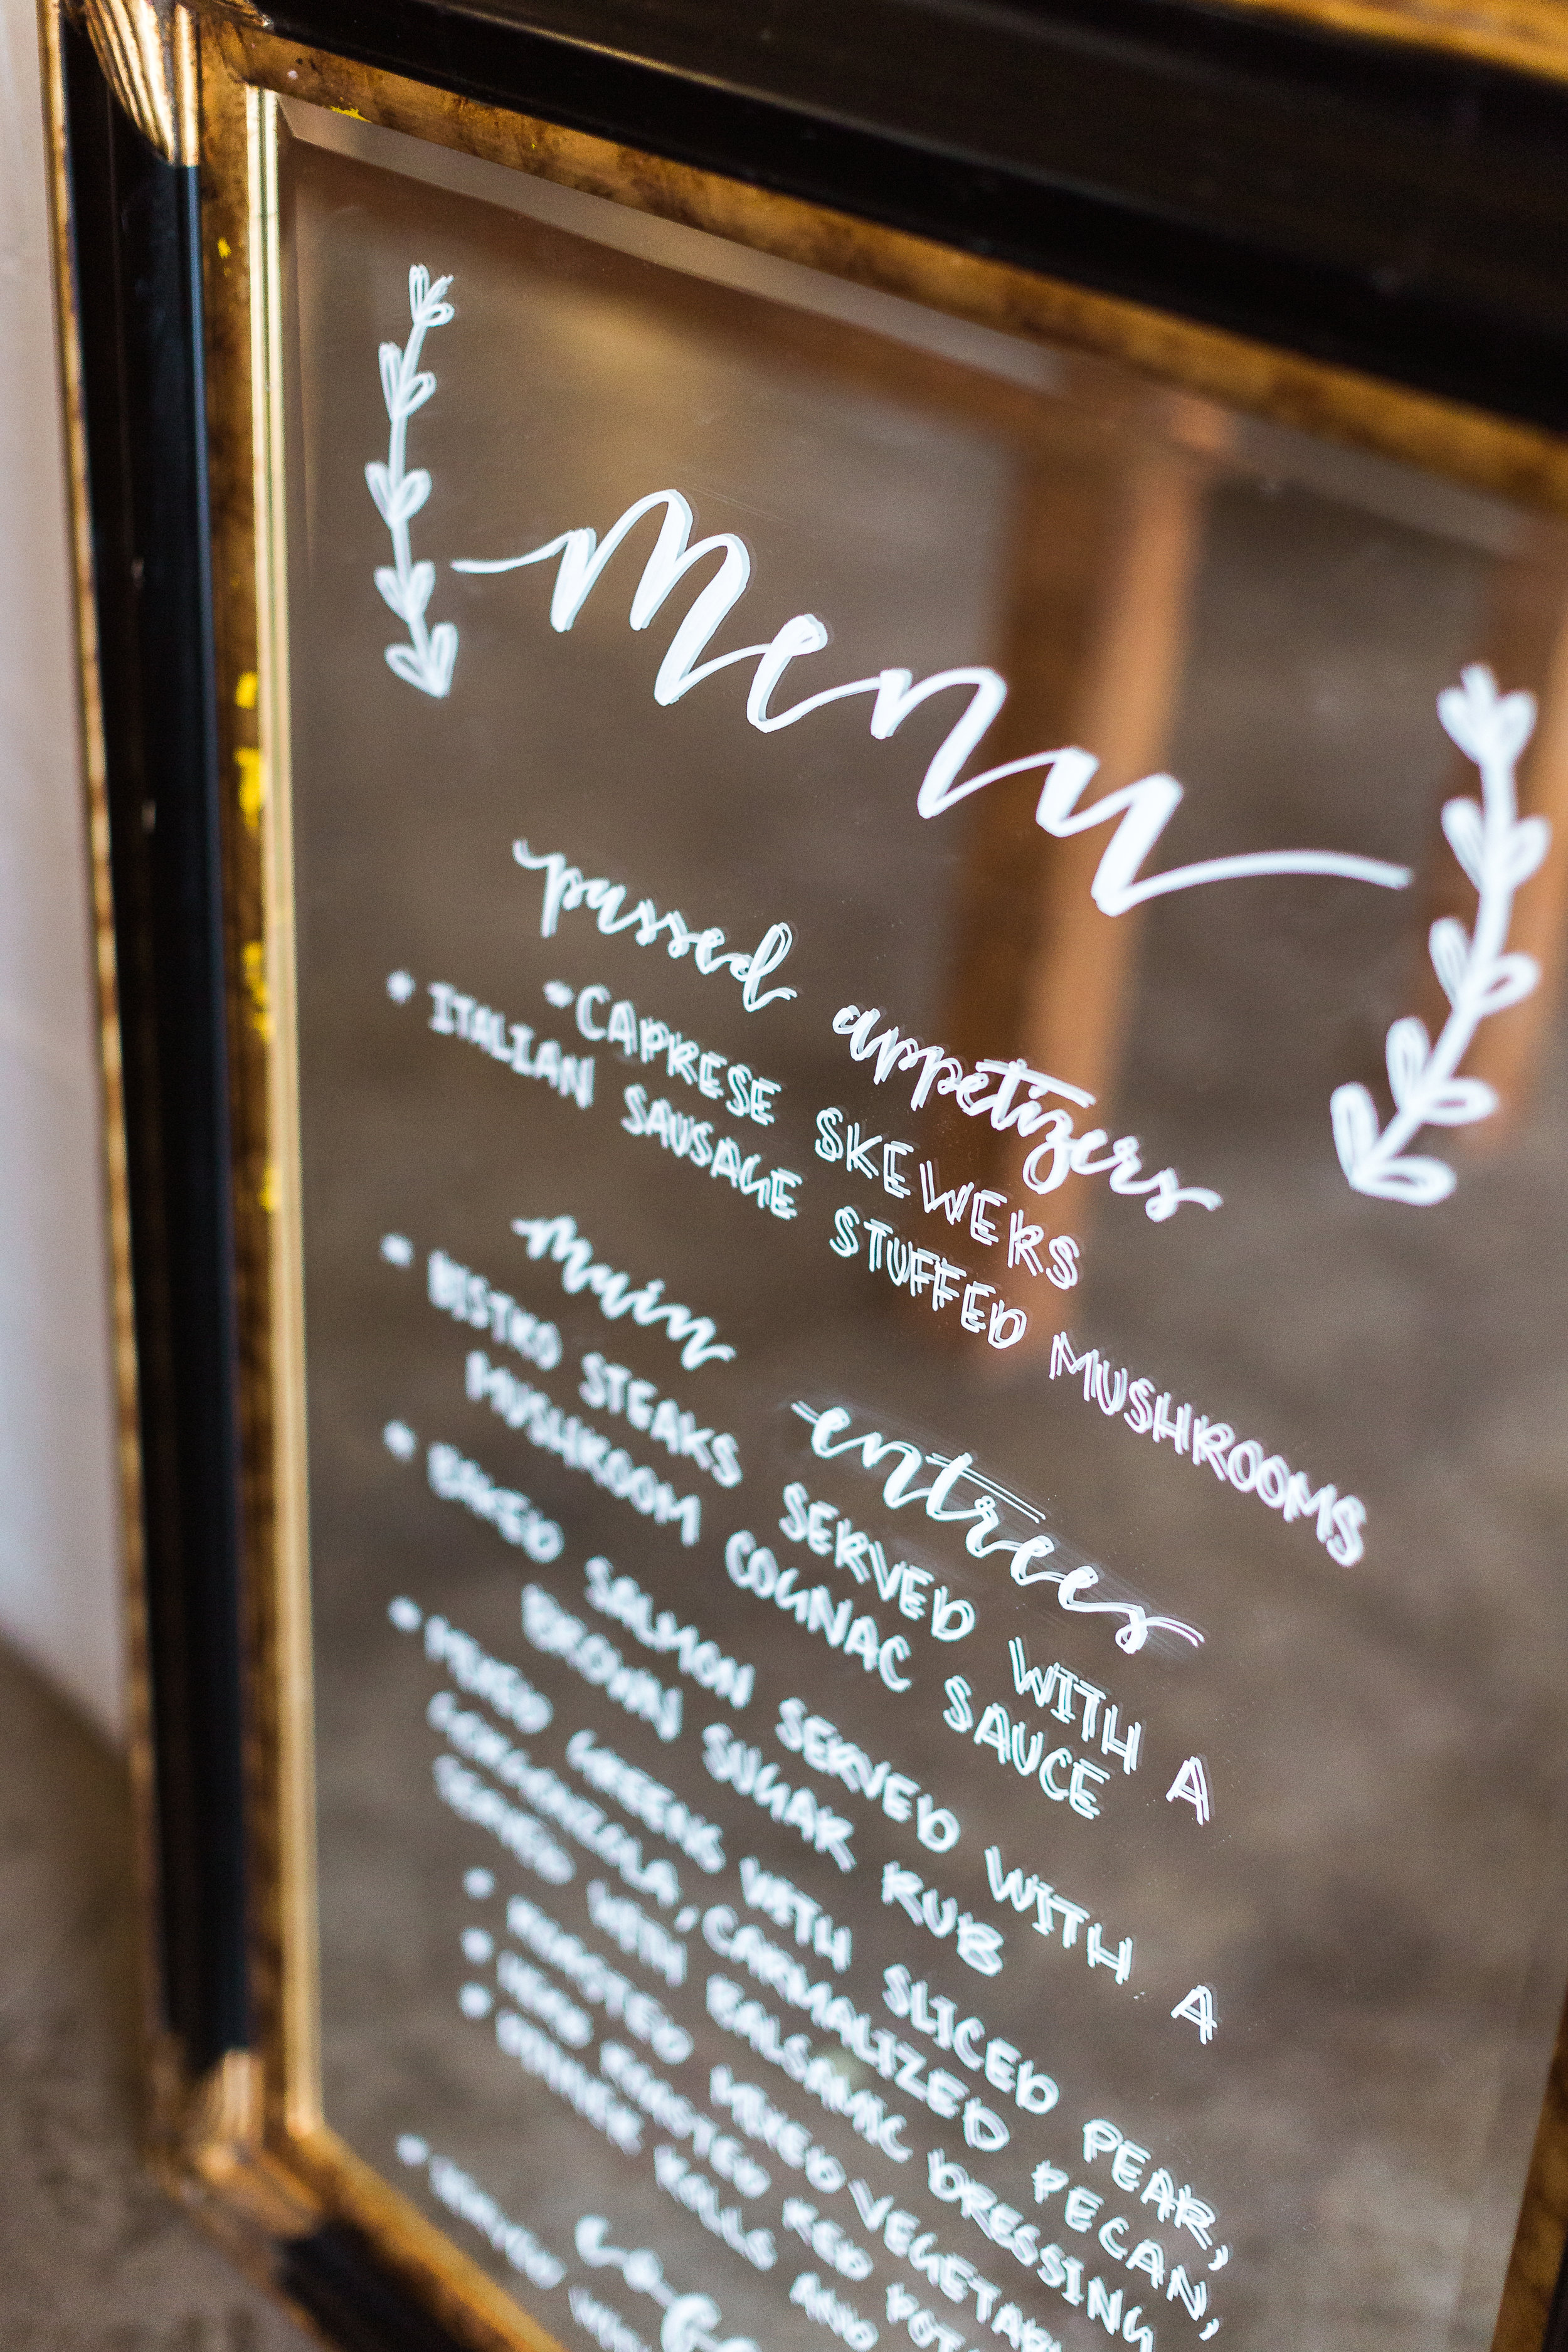 Menu
passed appetizers
• CAPRESE SKEWERS
• ITALIAN SAUSAGE STUFFED MUSHROOMS
main entrees
• BISTRO STEAKS SERVED WITH A
MUSHROOM COGNAC SAUCE
• BAKED SALMON SERVED WITH A
BROWN SUGAR RUB
• MIXED GREENS WITH SLICED PEAR,
GORGONZOLA, CARMALIZED PECAN,
SERVED WITH BALSAMIC DRESSING
• ROASTED MIXED VEGETAB
• HERB ROASTED RED POT
• DINNER ROLLS AND